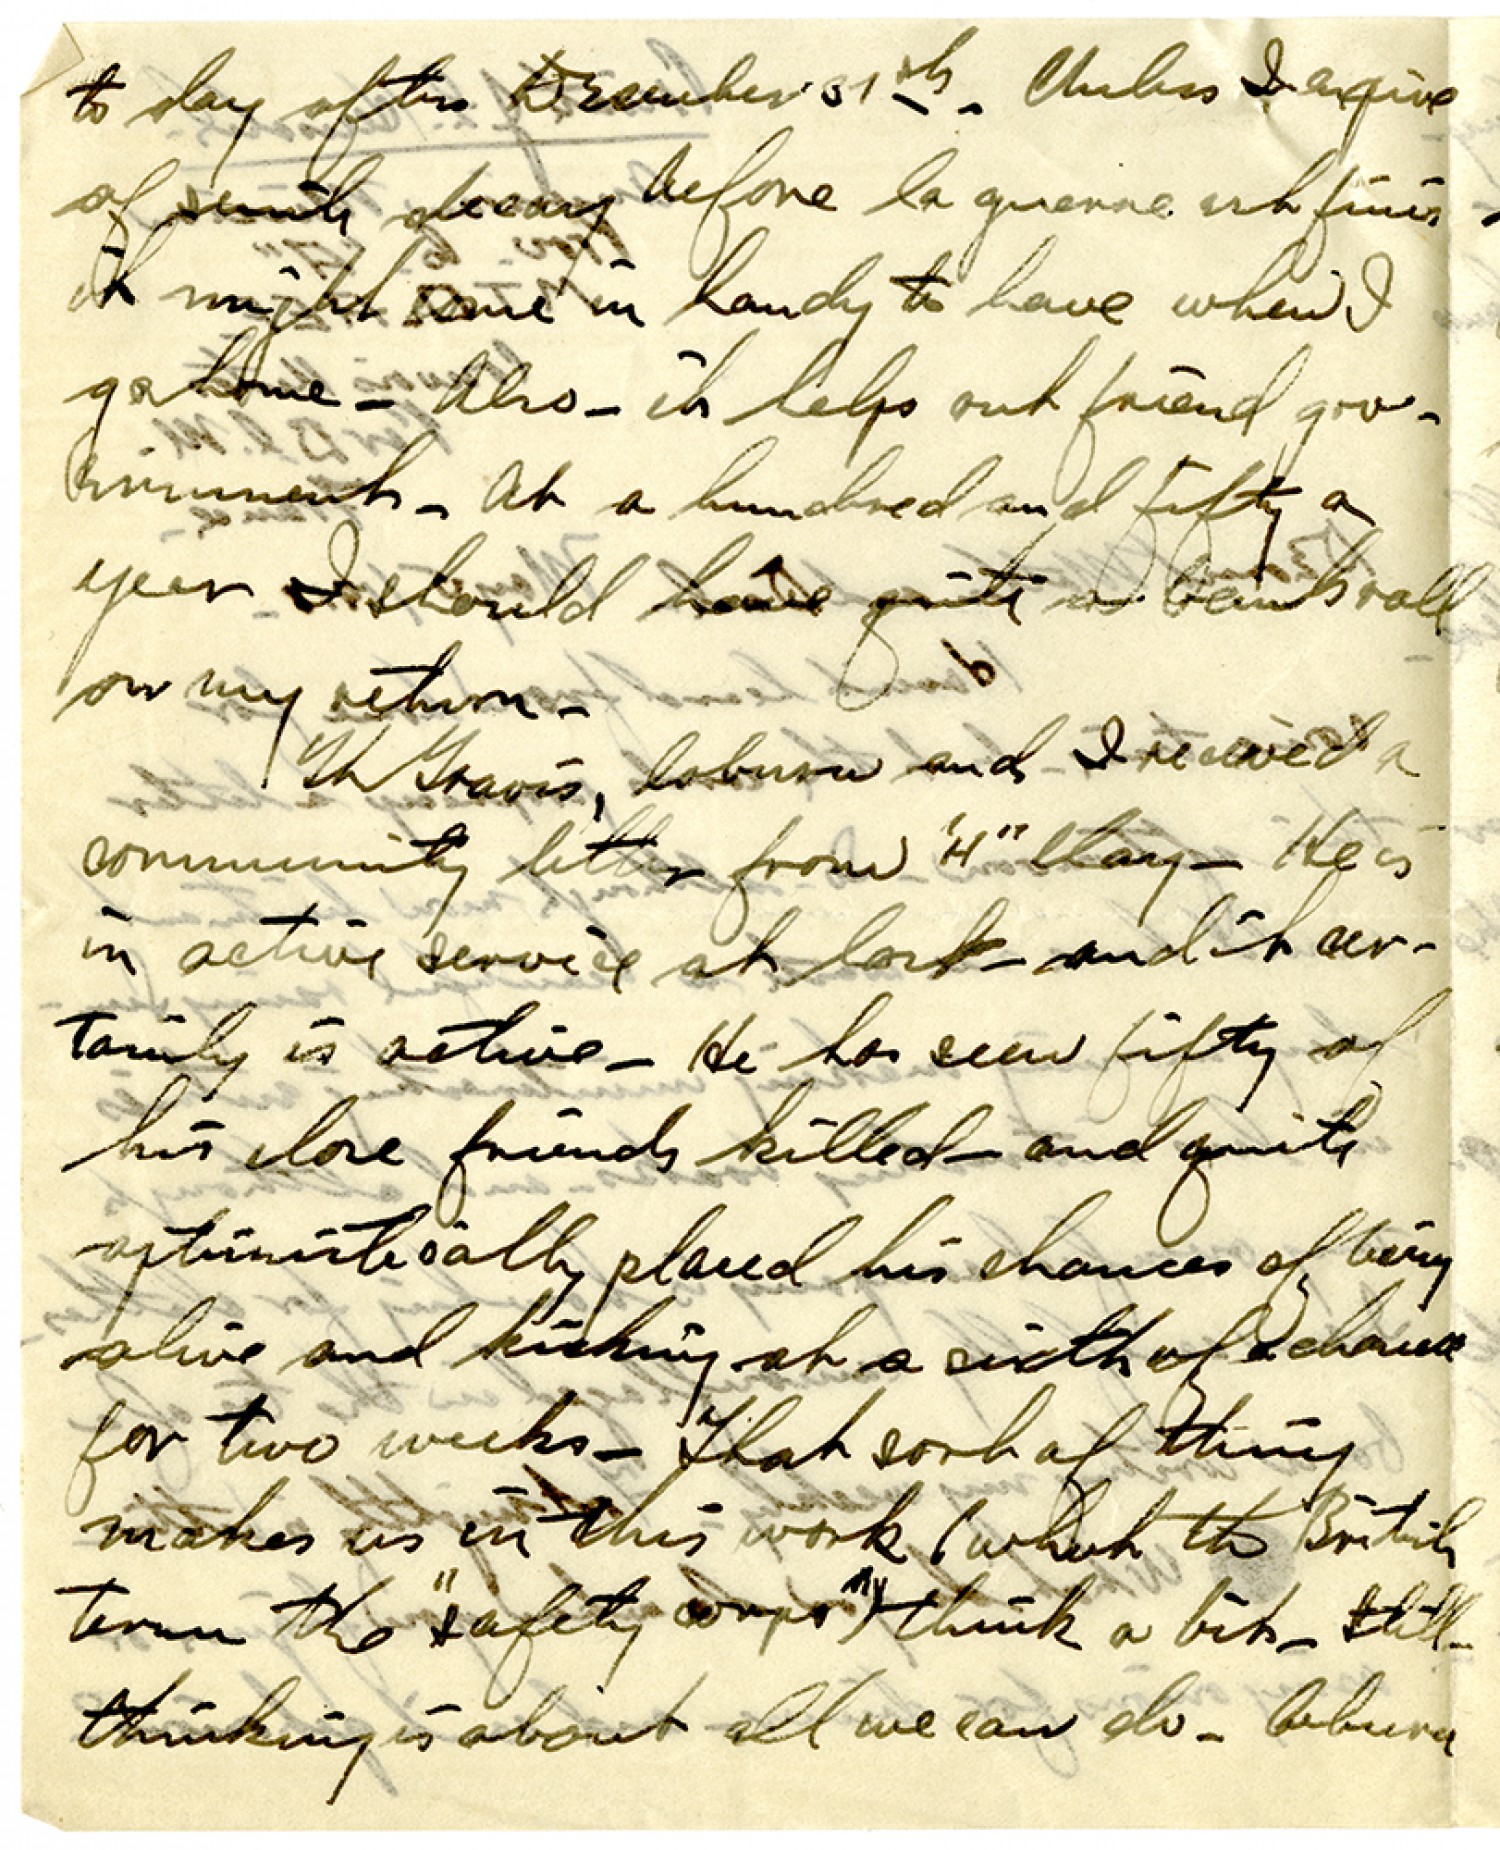 to day after December 31th. Unless I expire
of senile decay before la guerre est finis -
it might come in handy to have when I
go home - Also - it helps out friend gov-
ernment - At a hundred and fifty a
year I should have quite a bankroll
on my return -
Travis, Coburn and I received a
community letter from "H" Clay - He is
in active service at last - and it cer-
tainly is active - He has seen fifty of
his close friends killed - and quite
optimistically placed his chances of being
alive and kicking at a sixth of a chance
for two weeks - That sort of thing
makes us in this work (what the British
term the "safety corps") think a bit - Still -
thinking is about all we can do - Coburn